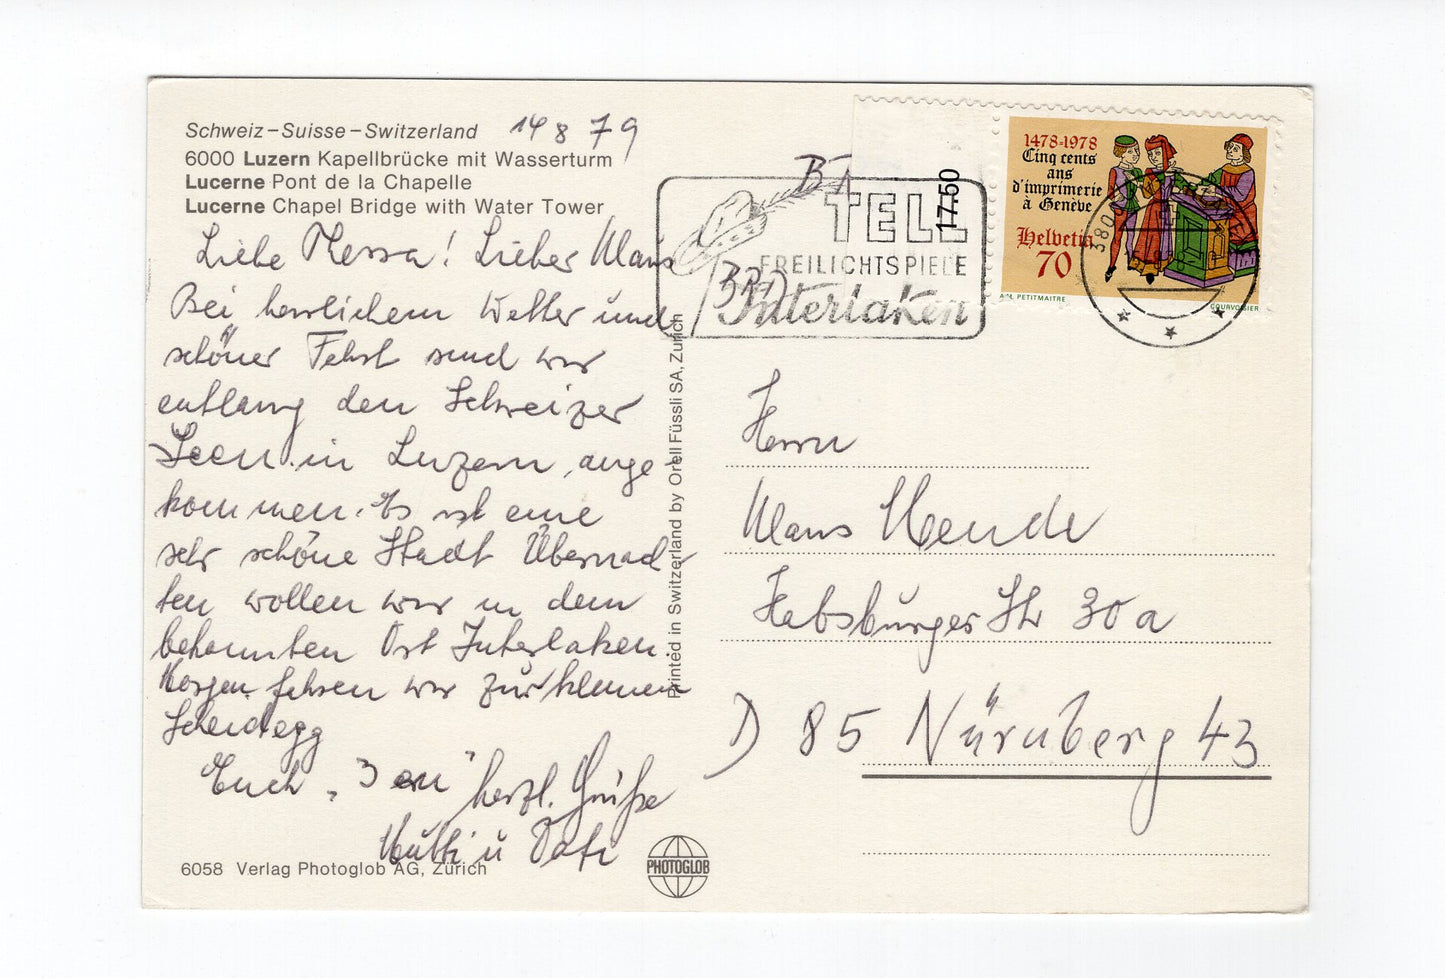 Schweiz–Suisse–Switzerland 14 8 79
6000 Luzern Kapellbrücke mit Wasserturm
Lucerne Pont de la Chapelle
Lucerne Chapel Bridge with Water Tower
Liebe ! Lieber Klaus
Bei herrlichem Wetter und
schöner Fahrt sind wir
entlang den Schweizer
Seen in Luzern ange
kommen. Es ist eine
sehr schöne Stadt Übernach
ten wollen wir in dem
bekannten Ort Interlaken.
Morgen fahren wir zur kleinen
Scheidegg
Euch "3 en" herzl. Grüße
Mutti u Vati
6058 Verlag Photoglob AG, Zürich
PHOTOGLOB
Printed in Switzerland by Orell Füssli SA, Zürich
17.50
TELL
FREILICHTSPIELE
Interlaken
1478-1978
Cinq cents
ans
d'imprimerie
à Genève
Helvetia
70
A.M. PETITMAITRE
COURVOISIER
380
Herrn
Klaus
Habsburger Str 30a
D 85 Nürnberg 43